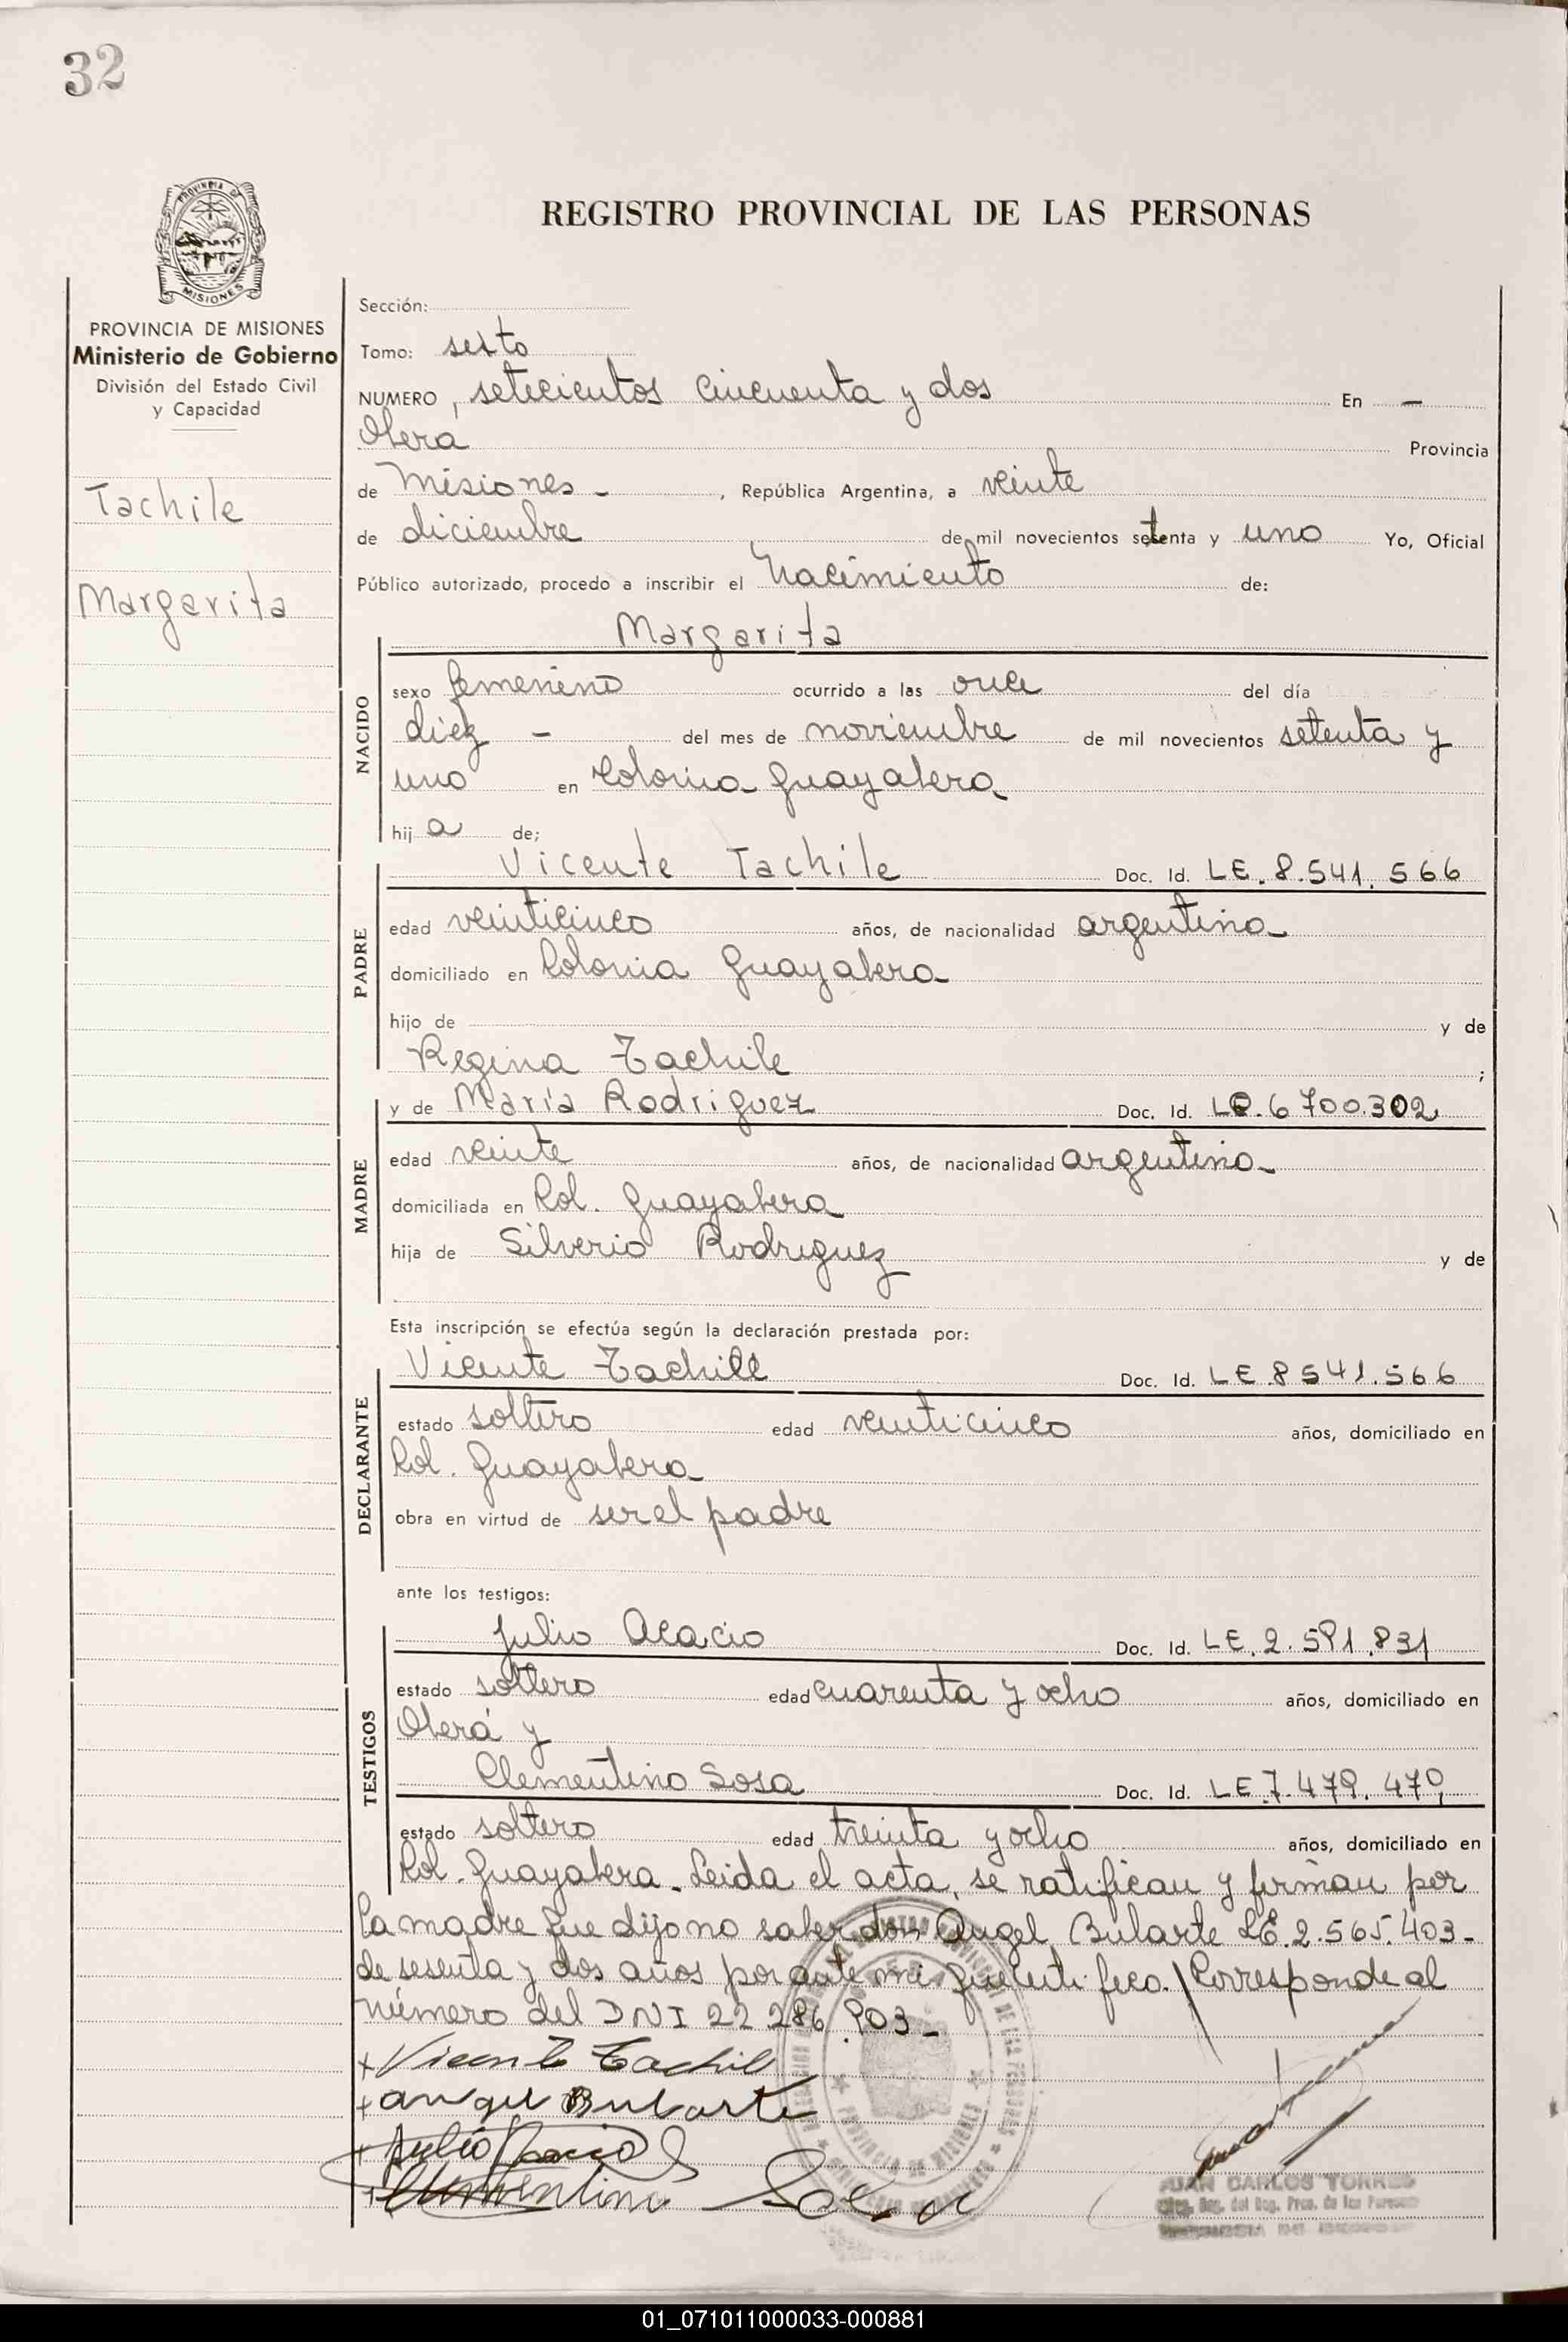 32
PROVINCIA DE
MISIONES
REGISTRO PROVINCIAL DE LAS PERSONAS
PROVINCIA DE MISIONES
Ministerio de Gobierno
División del Estado Civil
y Capacidad
Tachile
Margarita
Sección:
Tomo: sexto
NUMERO, setecientos cincuenta y dos En —
Oberá Provincia
de Misiones - , República Argentina, a veinte
de diciembre de mil novecientos setenta y uno Yo, Oficial
Público autorizado, procedo a inscribir el Nacimiento de:
Margarita
NACIDO
sexo femenino ocurrido a las once del día
diez - del mes de noviembre de mil novecientos setenta y
uno en Colonia Guayabera
hija de;
Vicente Tachile Doc. Id. LE. 8.541.566
PADRE
edad veinticinco años, de nacionalidad argentina
domiciliado en Colonia Guayabera
hijo de y de
Regina Tachile ;
y de María Rodriguez Doc. Id. LC. 6700.302
MADRE
edad veinte años, de nacionalidad argentina
domiciliada en Col. Guayabera
hija de Silverio Rodriguez y de
Esta inscripción se efectúa según la declaración prestada por:
Vicente Tachile Doc. Id. LE 8541.566
DECLARANTE
estado soltero edad veinticinco años, domiciliado en
Col. Guayabera
obra en virtud de ser el padre
ante los testigos:
Julio Acacio Doc. Id. LE. 2.591.831
TESTIGOS
estado soltero edad cuarenta y ocho años, domiciliado en
Oberá y
Clementino Sosa Doc. Id. LE 7.479.470
estado soltero edad treinta y ocho años, domiciliado en
Col. Guayabera. Leida el acta, se ratifican y firman por
la madre que dijo no saber don Angel Bularte LE. 2.565.403-
de sesenta y dos años por ante mi que certifico. Corresponde al
número del DNI 22 286 903-
+ Vicente Tachil
+ angel Bularte
+ Julio Acacio
+ Clementino Sosa
PROVINCIA DE MISIONES
JUAN CARLOS TORRES
01_071011000033-000881